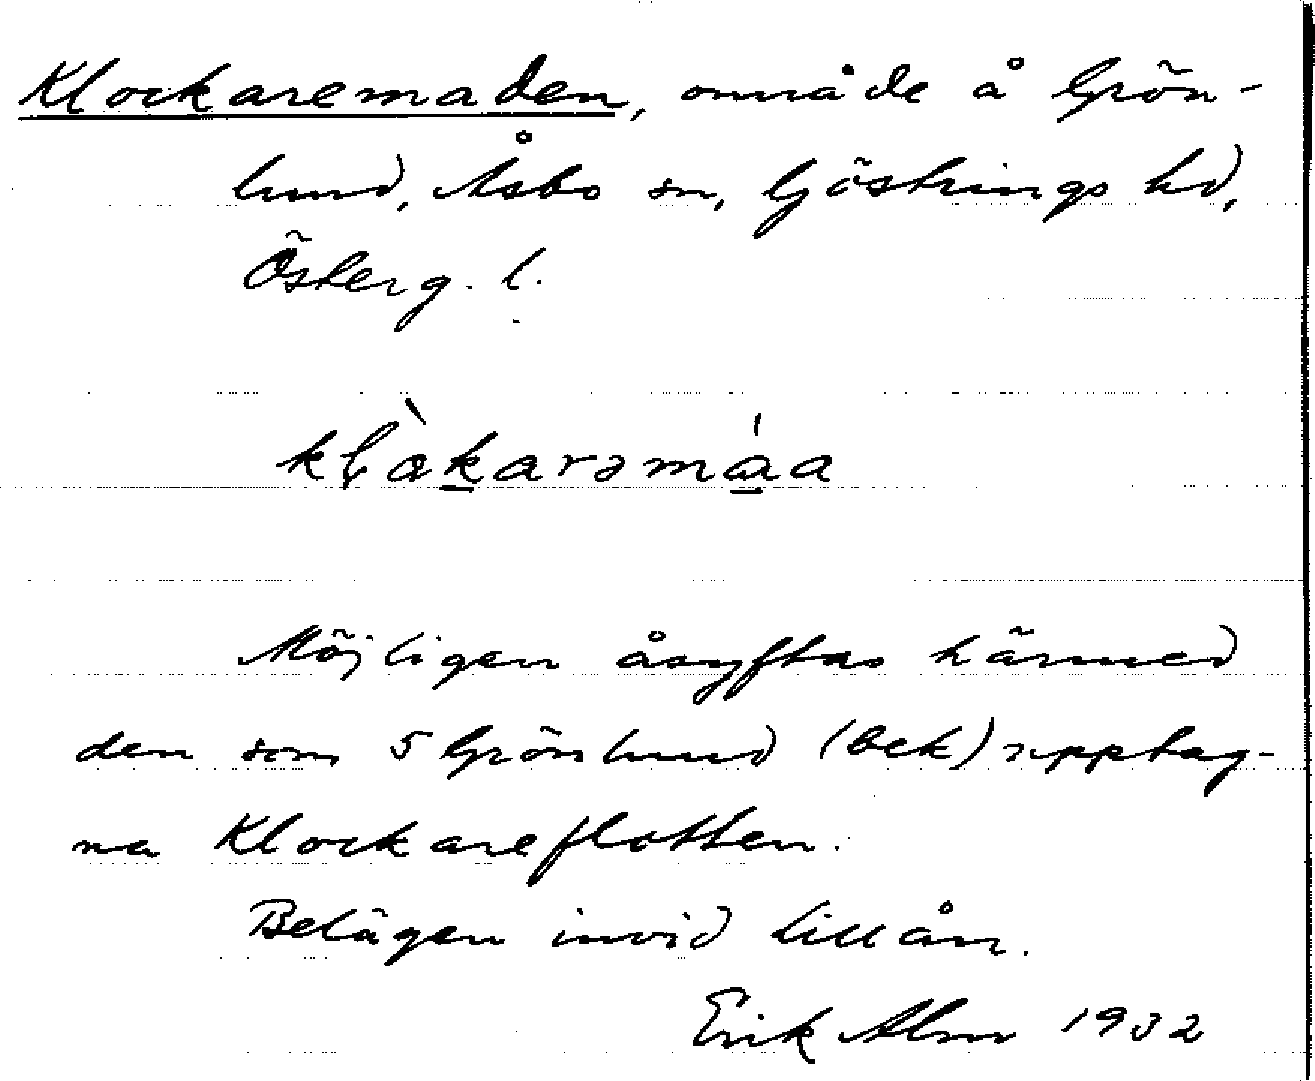 Klockaremaden, område å Grön-
lund, Åsbo sn, Göstrings hd,
Österg. l.
klòkarəmáa
Möjligen åsyftas härmed
den som 5 Grönlund (Eek) upptag-
na Klockareflotten.
Belägen invid Lillån.
Erik Alm 1932